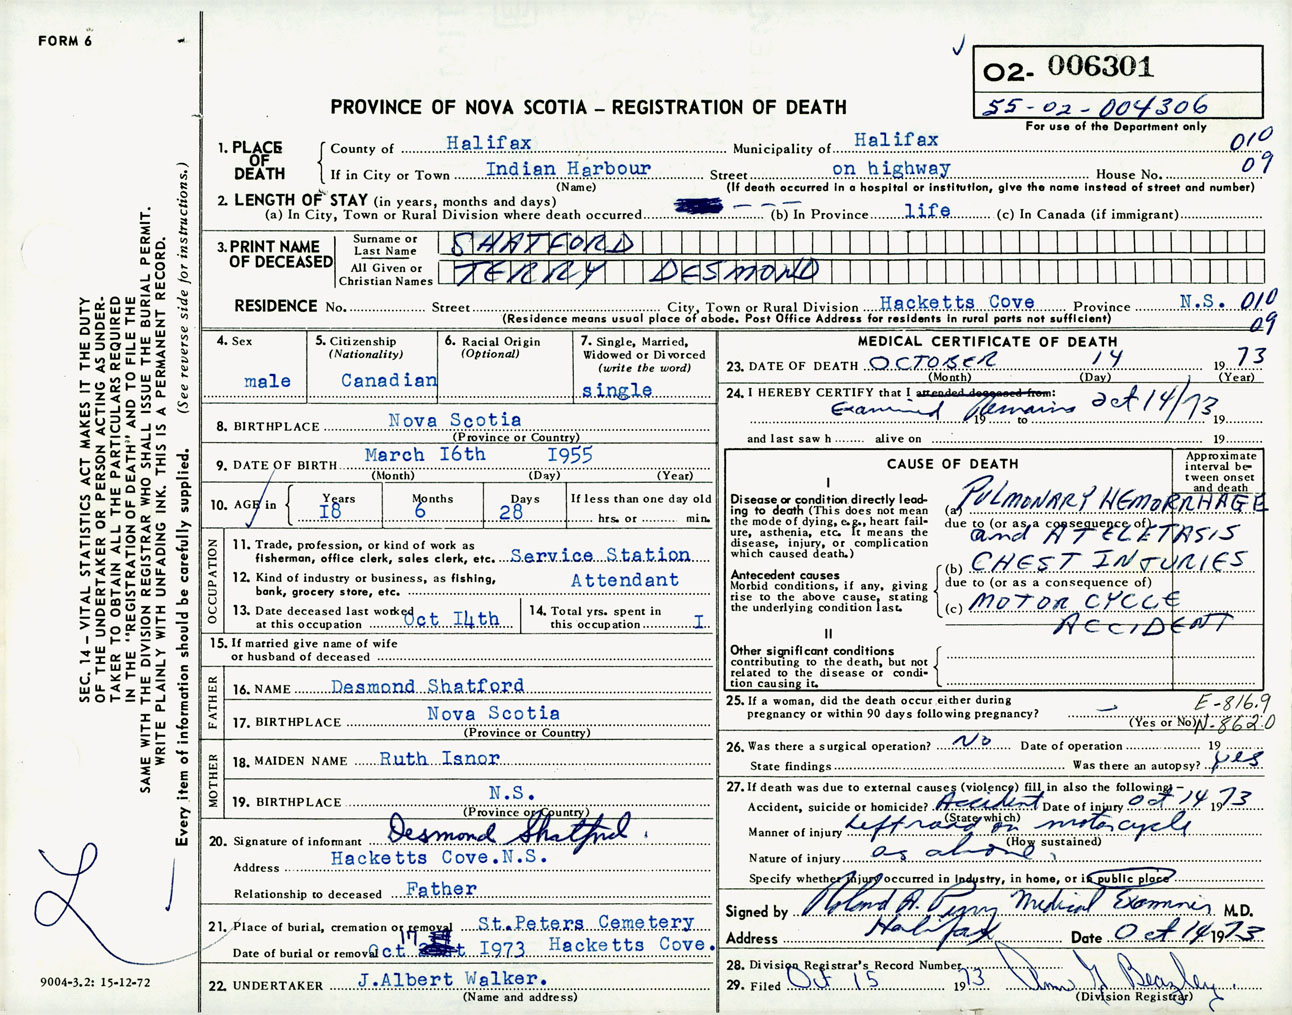 FORM 6
O2- 006301
55-02-004306
For use of the Department only
PROVINCE OF NOVA SCOTIA — REGISTRATION OF DEATH
1. PLACE OF DEATH
County of Halifax Municipality of Halifax 010
If in City or Town Indian Harbour Street on highway House No. 09
(Name) (If death occurred in a hospital or institution, give the name instead of street and number)
2. LENGTH OF STAY (in years, months and days)
(a) In City, Town or Rural Division where death occurred (b) In Province life (c) In Canada (if immigrant)
3. PRINT NAME OF DECEASED
Surname or Last Name SHATFORD
All Given or Christian Names TERRY DESMOND
RESIDENCE No. Street City, Town or Rural Division Hacketts Cove Province N.S. 010
(Residence means usual place of abode. Post Office Address for residents in rural parts not sufficient) 09
4. Sex male
5. Citizenship (Nationality) Canadian
6. Racial Origin (Optional)
7. Single, Married, Widowed or Divorced (write the word) single
8. BIRTHPLACE Nova Scotia
(Province or Country)
9. DATE OF BIRTH March I6th I955
(Month) (Day) (Year)
10. AGE in Years I8 Months 6 Days 28 If less than one day old hrs. or min.
OCCUPATION
11. Trade, profession, or kind of work as fisherman, office clerk, sales clerk, etc. Service Station
12. Kind of industry or business, as fishing, bank, grocery store, etc. Attendant
13. Date deceased last worked at this occupation Oct I4th
14. Total yrs. spent in this occupation I
15. If married give name of wife or husband of deceased
FATHER
16. NAME Desmond Shatford
17. BIRTHPLACE Nova Scotia
(Province or Country)
MOTHER
18. MAIDEN NAME Ruth Isnor
19. BIRTHPLACE N.S.
(Province or Country)
20. Signature of informant Desmond Shatford
Address Hacketts Cove.N.S.
Relationship to deceased Father
21. Place of burial, cremation or removal St.Peters Cemetery
Date of burial or removal Oct 17 I973 Hacketts Cove.
22. UNDERTAKER J.Albert Walker.
(Name and address)
MEDICAL CERTIFICATE OF DEATH
23. DATE OF DEATH OCTOBER 14 1973
(Month) (Day) (Year)
24. I HEREBY CERTIFY that I attended deceased from:
Examined Remains Oct 14/73 19 to 19
and last saw h alive on 19
CAUSE OF DEATH
Approximate interval between onset and death
I
Disease or condition directly leading to death (This does not mean the mode of dying, e.g., heart failure, asthenia, etc. It means the disease, injury, or complication which caused death.)
(a) PULMONARY HEMORRHAGE
due to (or as a consequence of)
and ATELETASIS
Antecedent causes
Morbid conditions, if any, giving rise to the above cause, stating the underlying condition last.
(b) CHEST INJURIES
due to (or as a consequence of)
(c) MOTOR CYCLE
ACCIDENT
II
Other significant conditions
contributing to the death, but not related to the disease or condition causing it.
25. If a woman, did the death occur either during pregnancy or within 90 days following pregnancy?
(Yes or No)
E-816.9
N-862.0
26. Was there a surgical operation? No Date of operation 19
State findings Was there an autopsy? yes
27. If death was due to external causes (violence) fill in also the following:—
Accident, suicide or homicide? Accident Date of injury Oct 14 1973
(State which)
Manner of injury left road on motorcycle
(How sustained)
Nature of injury as above
Specify whether injury occurred in Industry, in home, or in public place
Signed by Roland A. Perry Medical Examiner M.D.
Address Halifax Date Oct 14 1973
28. Division Registrar's Record Number
29. Filed Oct 15 1973
(Division Registrar)
SEC. 14 — VITAL STATISTICS ACT MAKES IT THE DUTY
OF THE UNDERTAKER OR PERSON ACTING AS UNDER-
TAKER TO OBTAIN ALL THE PARTICULARS REQUIRED
IN THE "REGISTRATION OF DEATH" AND TO FILE THE
SAME WITH THE DIVISION REGISTRAR WHO SHALL ISSUE THE BURIAL PERMIT.
WRITE PLAINLY WITH UNFADING INK. THIS IS A PERMANENT RECORD.
Every item of information should be carefully supplied. (See reverse side for instructions.)
9004-3.2: 15-12-72